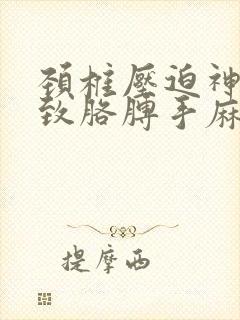 颈柱壓迫神
致胳膊手麻
提摩西